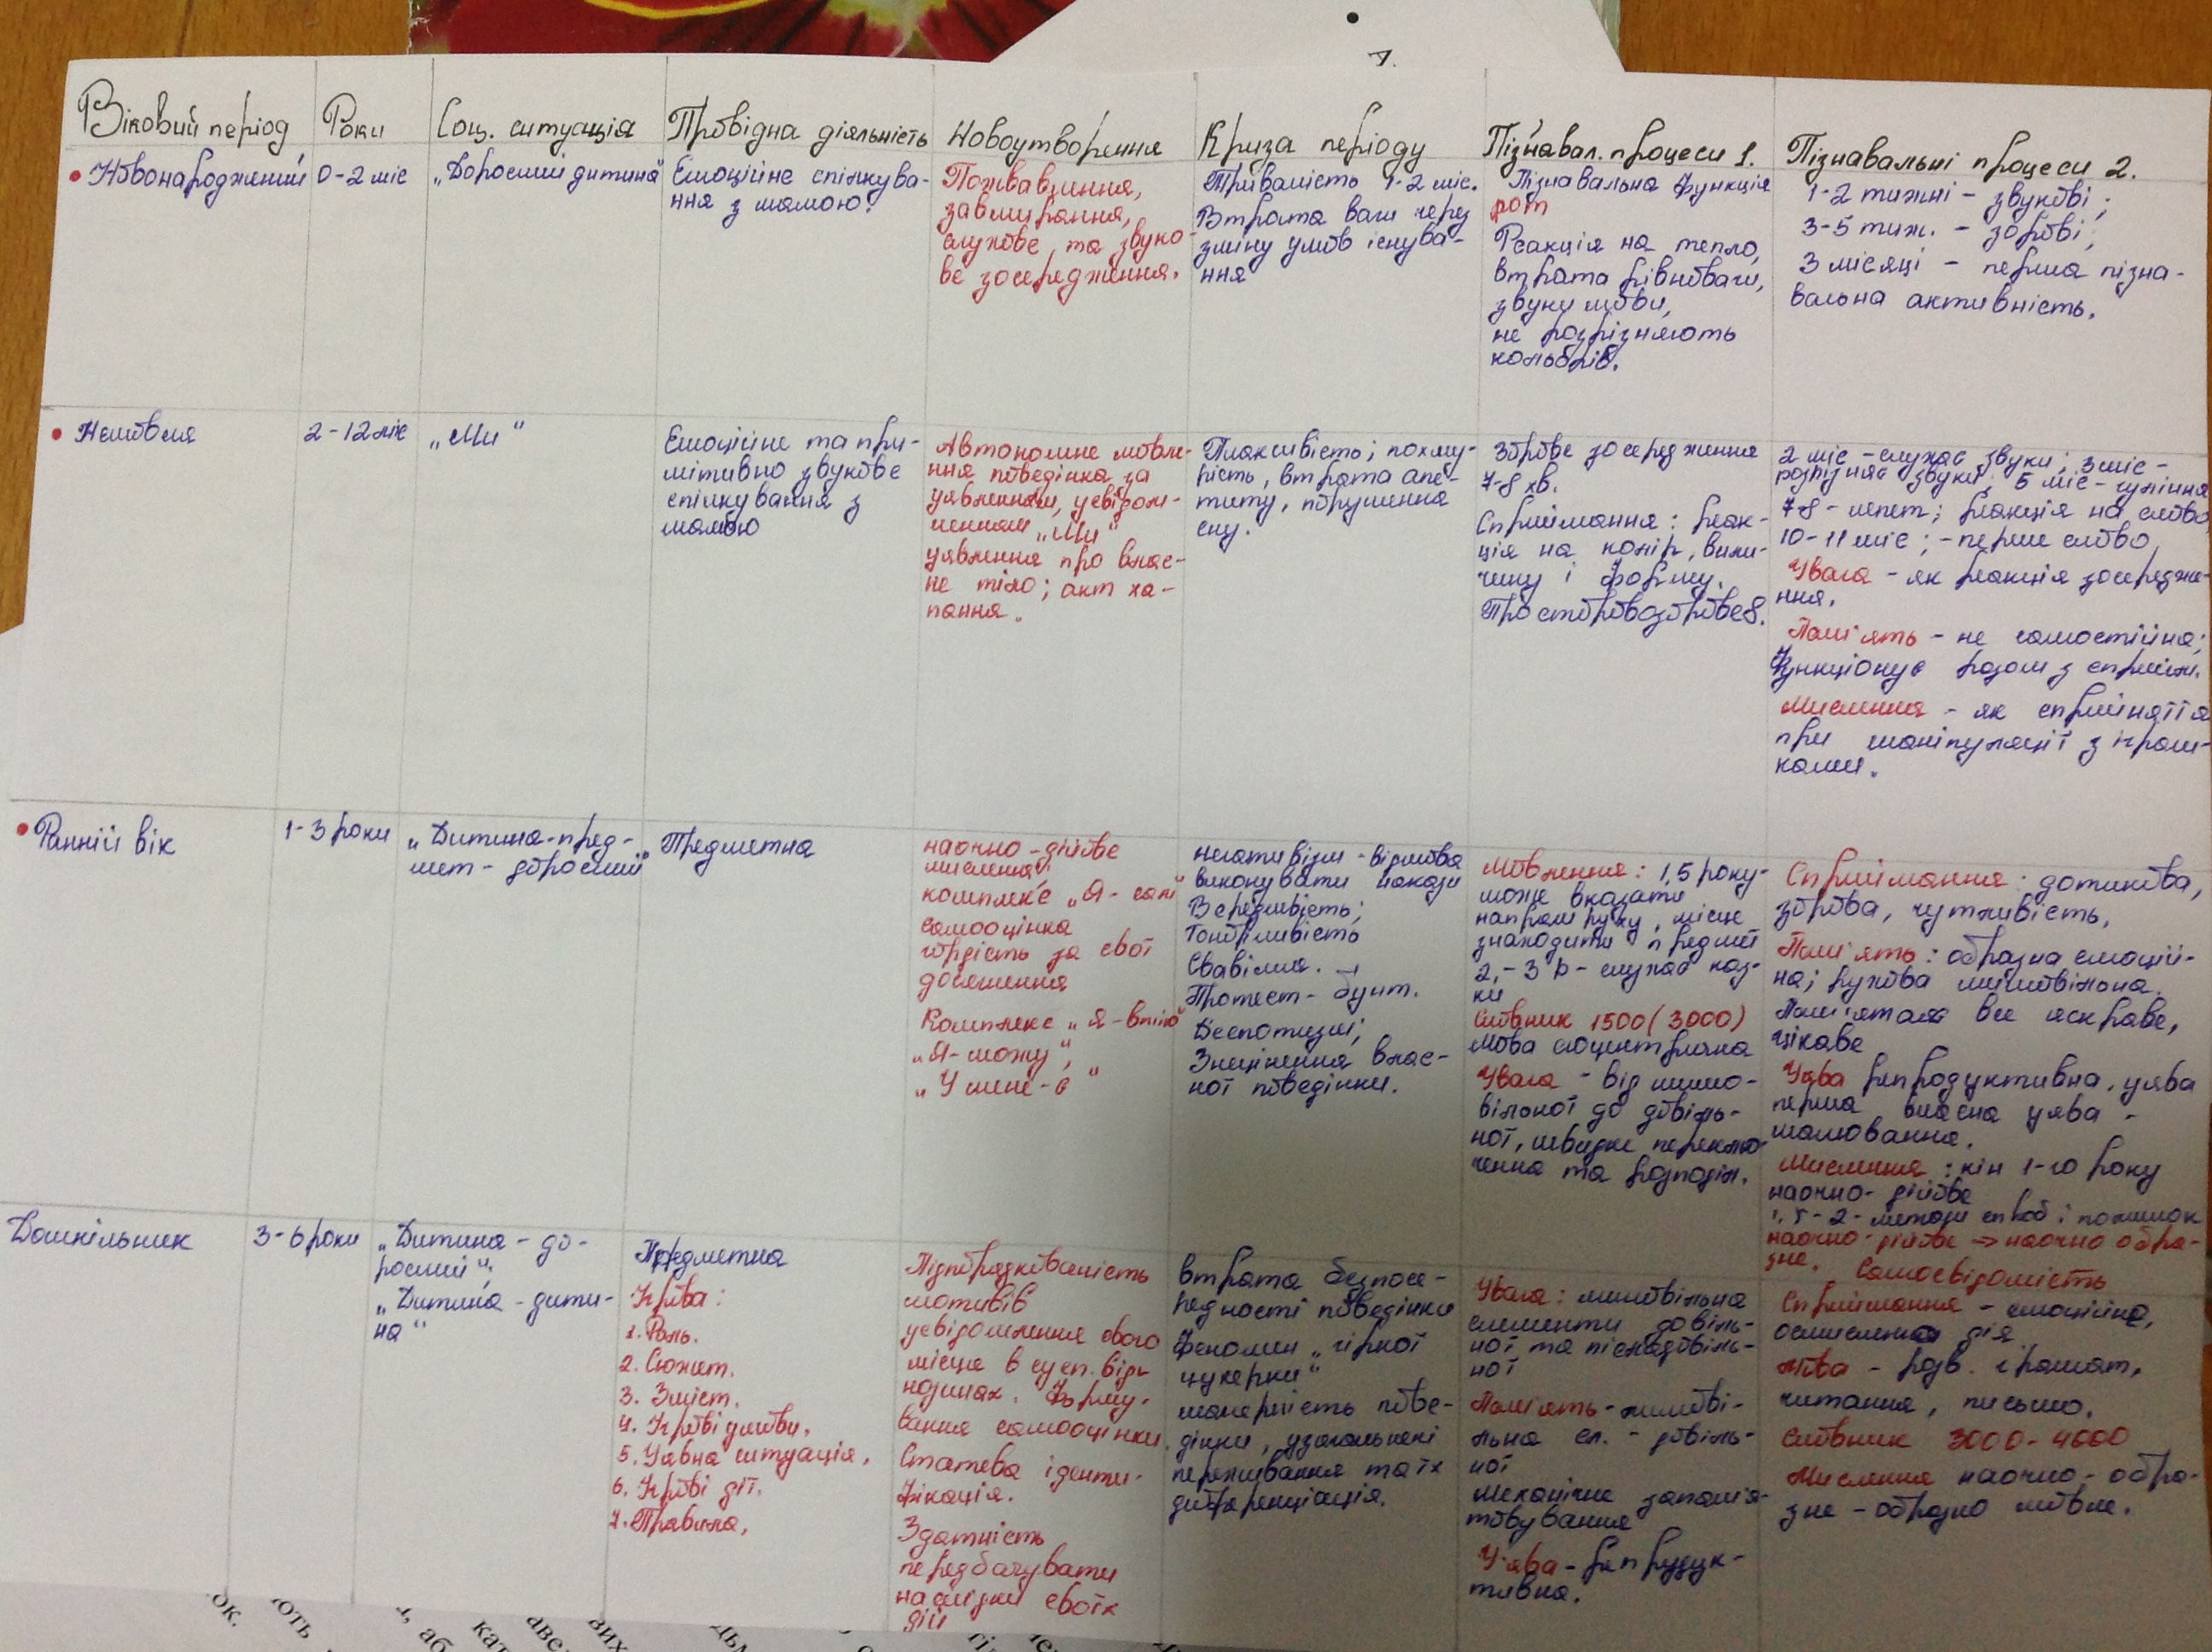 Віковий період
Роки
Соц. ситуація
Провідна діяльність
Новоутворення
Криза періоду
Пізнавал. процеси 1.
Пізнавальні процеси 2.
Новонароджений
0-2 міс
„Дорослий дитина"
Емоційне спілкува-
ння з мамою.
Пожвавлення,
завмирання,
слухове та звуко-
ве зосередження.
Тривалість 1-2 міс.
Втрата ваги через
зміну умов існува-
ння
Пізнавальна функція
рот
Реакція на тепло,
втрата рівноваги,
звуки мови,
не розрізняють
кольорів.
1-2 тижні - звукові;
3-5 тиж. - зорові;
3 місяці - перша пізна-
вальна активність.
Немовля
2-12 міс
„Ми"
Емоційне та при-
мітивно звукове
спілкування з
мамою
Автономне мовле-
ння поведінка за
уявленням, усвідом-
ленням „Ми"
уявлення про влас-
не тіло; акт ха-
пання.
Плаксивість; похму-
рість, втрата апе-
титу, порушення
сну.
Зорове зосередження
7-8 хв.
Сприймання: реак-
ція на колір, вели-
чину і форму.
2 міс - слухає звуки; 3 міс -
розрізняє звуки; 5 міс - гуління
7-8 - лепет; реакція на слово
10-11 міс; - перше слово
Увага - як реакція зосередже-
ння.
Пам'ять - не самостійна;
функціонує разом з сприйм.
Мислення - як сприйняття
при маніпуляції з іграш-
ками.
Ранній вік
1-3 роки
„Дитина-пред-
мет-дорослий"
Предметна
наочно-дійове
мислення;
комплекс „Я-сам"
самооцінка
гордість за свої
досягнення
Комплекс „Я-
„Я-можу";
„У мене-є"
негативізм - відмова
виконувати накази
Впертість;
Гонорливість
Свавілля.
Протест-бунт.
Деспотизм;
Знецінення влас-
ної поведінки.
Мовлення: 1,5 року-
може вказати
напрям руху, місце
знаходити предмет
2,-3 р-слухає каз-
ки
Словник 1500 (3000)
мова егоцентрична
Увага - від мимо-
вільної до довіль-
ної, швидке переклю-
чення та розподіл.
Сприймання: дотикова,
зорова, чутливість,
Пам'ять: образна емоцій-
на; рухова мимовільна.
Пам'ятає все яскраве,
цікаве
Уява репродуктивна, уява
перша власна уява -
малювання.
Мислення: кін 1-го року
наочно-дійове
1,5-2-методи спроб і помилок
наочно-дійове → наочно обра-
зне. Самосвідомість
Дошкільник
3-6 роки
„Дитина-до-
рослий";
„Дитина-дити-
на"
Предметна
Ігрова:
1. Роль.
2. Сюжет.
3. Зміст.
4. Ігрові умови.
5. Уявна ситуація.
6. Ігрові дії.
7. Правила.
Підпорядкованість
мотивів
усвідомлення свого
місця в сусп. відн
носинах. Форму-
вання самооцінки.
Статева іденти-
фікація.
Здатність
передбачувати
наслідки своїх
дій
втрата безпосе-
редності поведінки
феномен „гіркої
цукерки"
манерність пове-
дінки, узагальнені
переживання та їх
диференціація.
Увага: мимовільна
елементи довіль-
ної та післядовіль-
ної
Пам'ять-мимові-
льна ел. - довіль-
ної
Механічне запам'я-
товування
Уява-репродук-
тивна.
Сприймання - емоційне,
осмислена дія
Мова - розв. грамот,
читання, письмо.
Словник 3000-4000
Мислення наочно-обра-
зне-образно мовне.